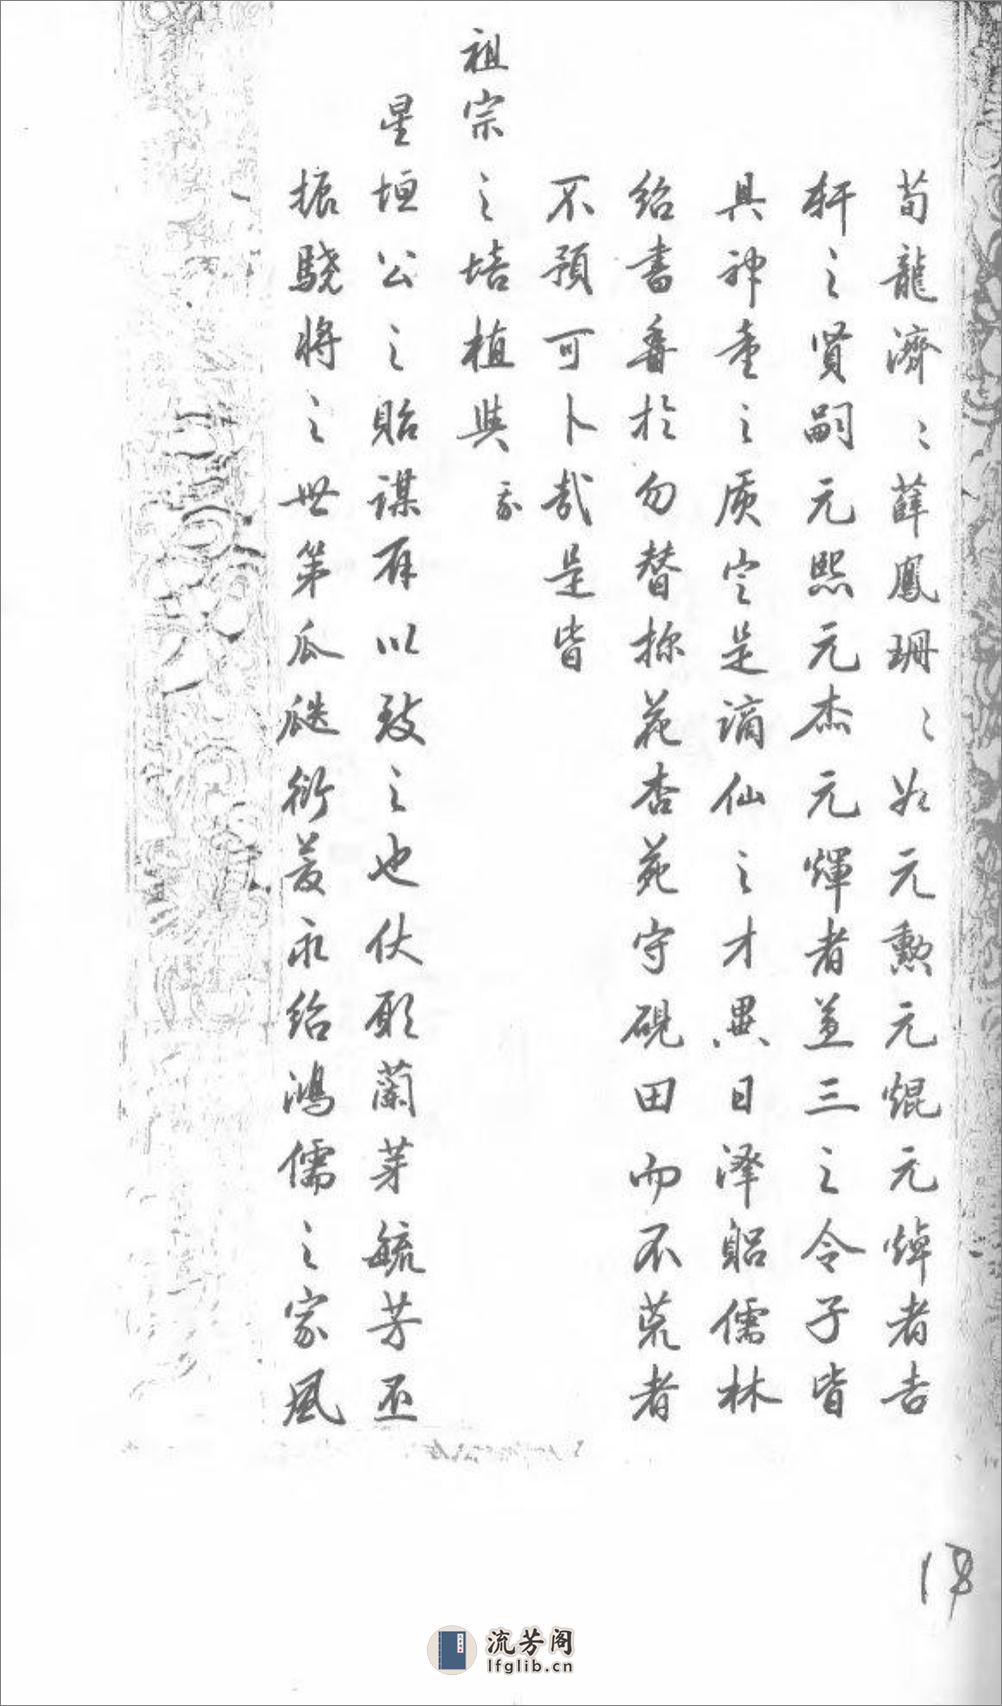 荀龍濟〻薛鳳珊〻如元勲元焜元焯者吉
軒之賢嗣元熙元杰元煇者並三之令子皆
具神童之质定是謫仙之才異日澤躬儒林
紹書香於勿替探花杏苑守硯田而不荒者
不預可卜哉是皆
祖宗之培植與 我
星垣公之貽謀有以致之也伏願蘭芽毓芳丕
振驍將之世第瓜瓞衍慶永紹鴻儒之家風
流芳阁
lfglib.cn